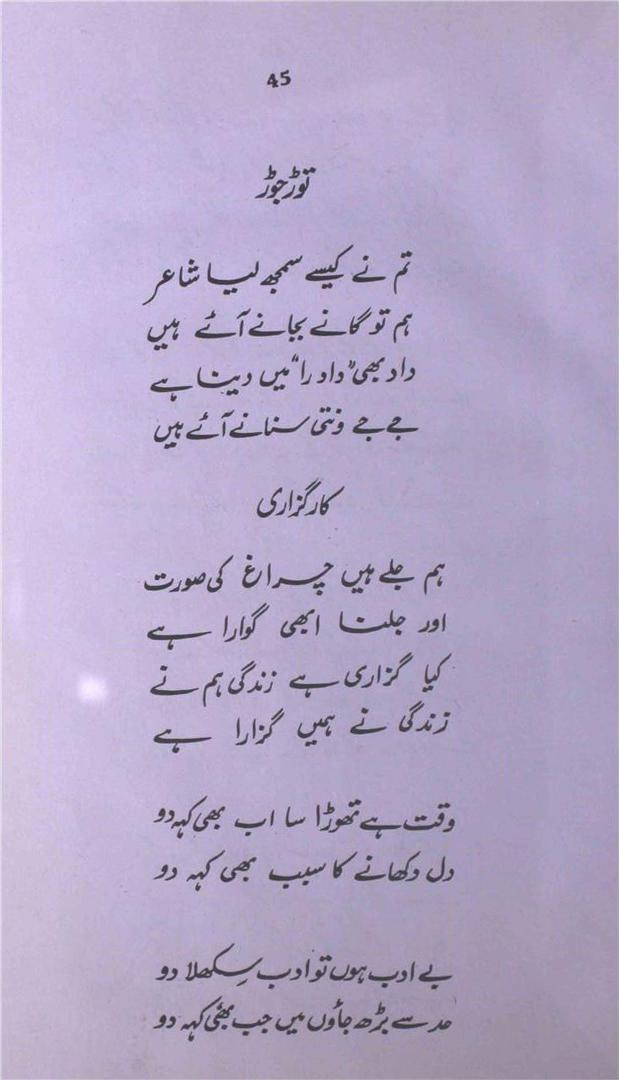 45
توڑ جوڑ
تم نے کیسے سمجھ لیا شاعر
ہم تو گانے بجانے آئے ہیں
داد بھی "دادرا" میں دینا ہے
جے جے ونتی سنانے آئے ہیں
کارگزاری
ہم جلے ہیں چراغ کی صورت
اور جلنا ابھی گوارا ہے
کیا گزاری ہے زندگی ہم نے
زندگی نے ہمیں گزارا ہے
وقت ہے تھوڑا سا اب بھی کہہ دو
دل دکھانے کا سبب بھی کہہ دو
بے ادب ہوں تو ادب سِکھلا دو
حد سے بڑھ جاؤں میں جب بھی کہہ دو